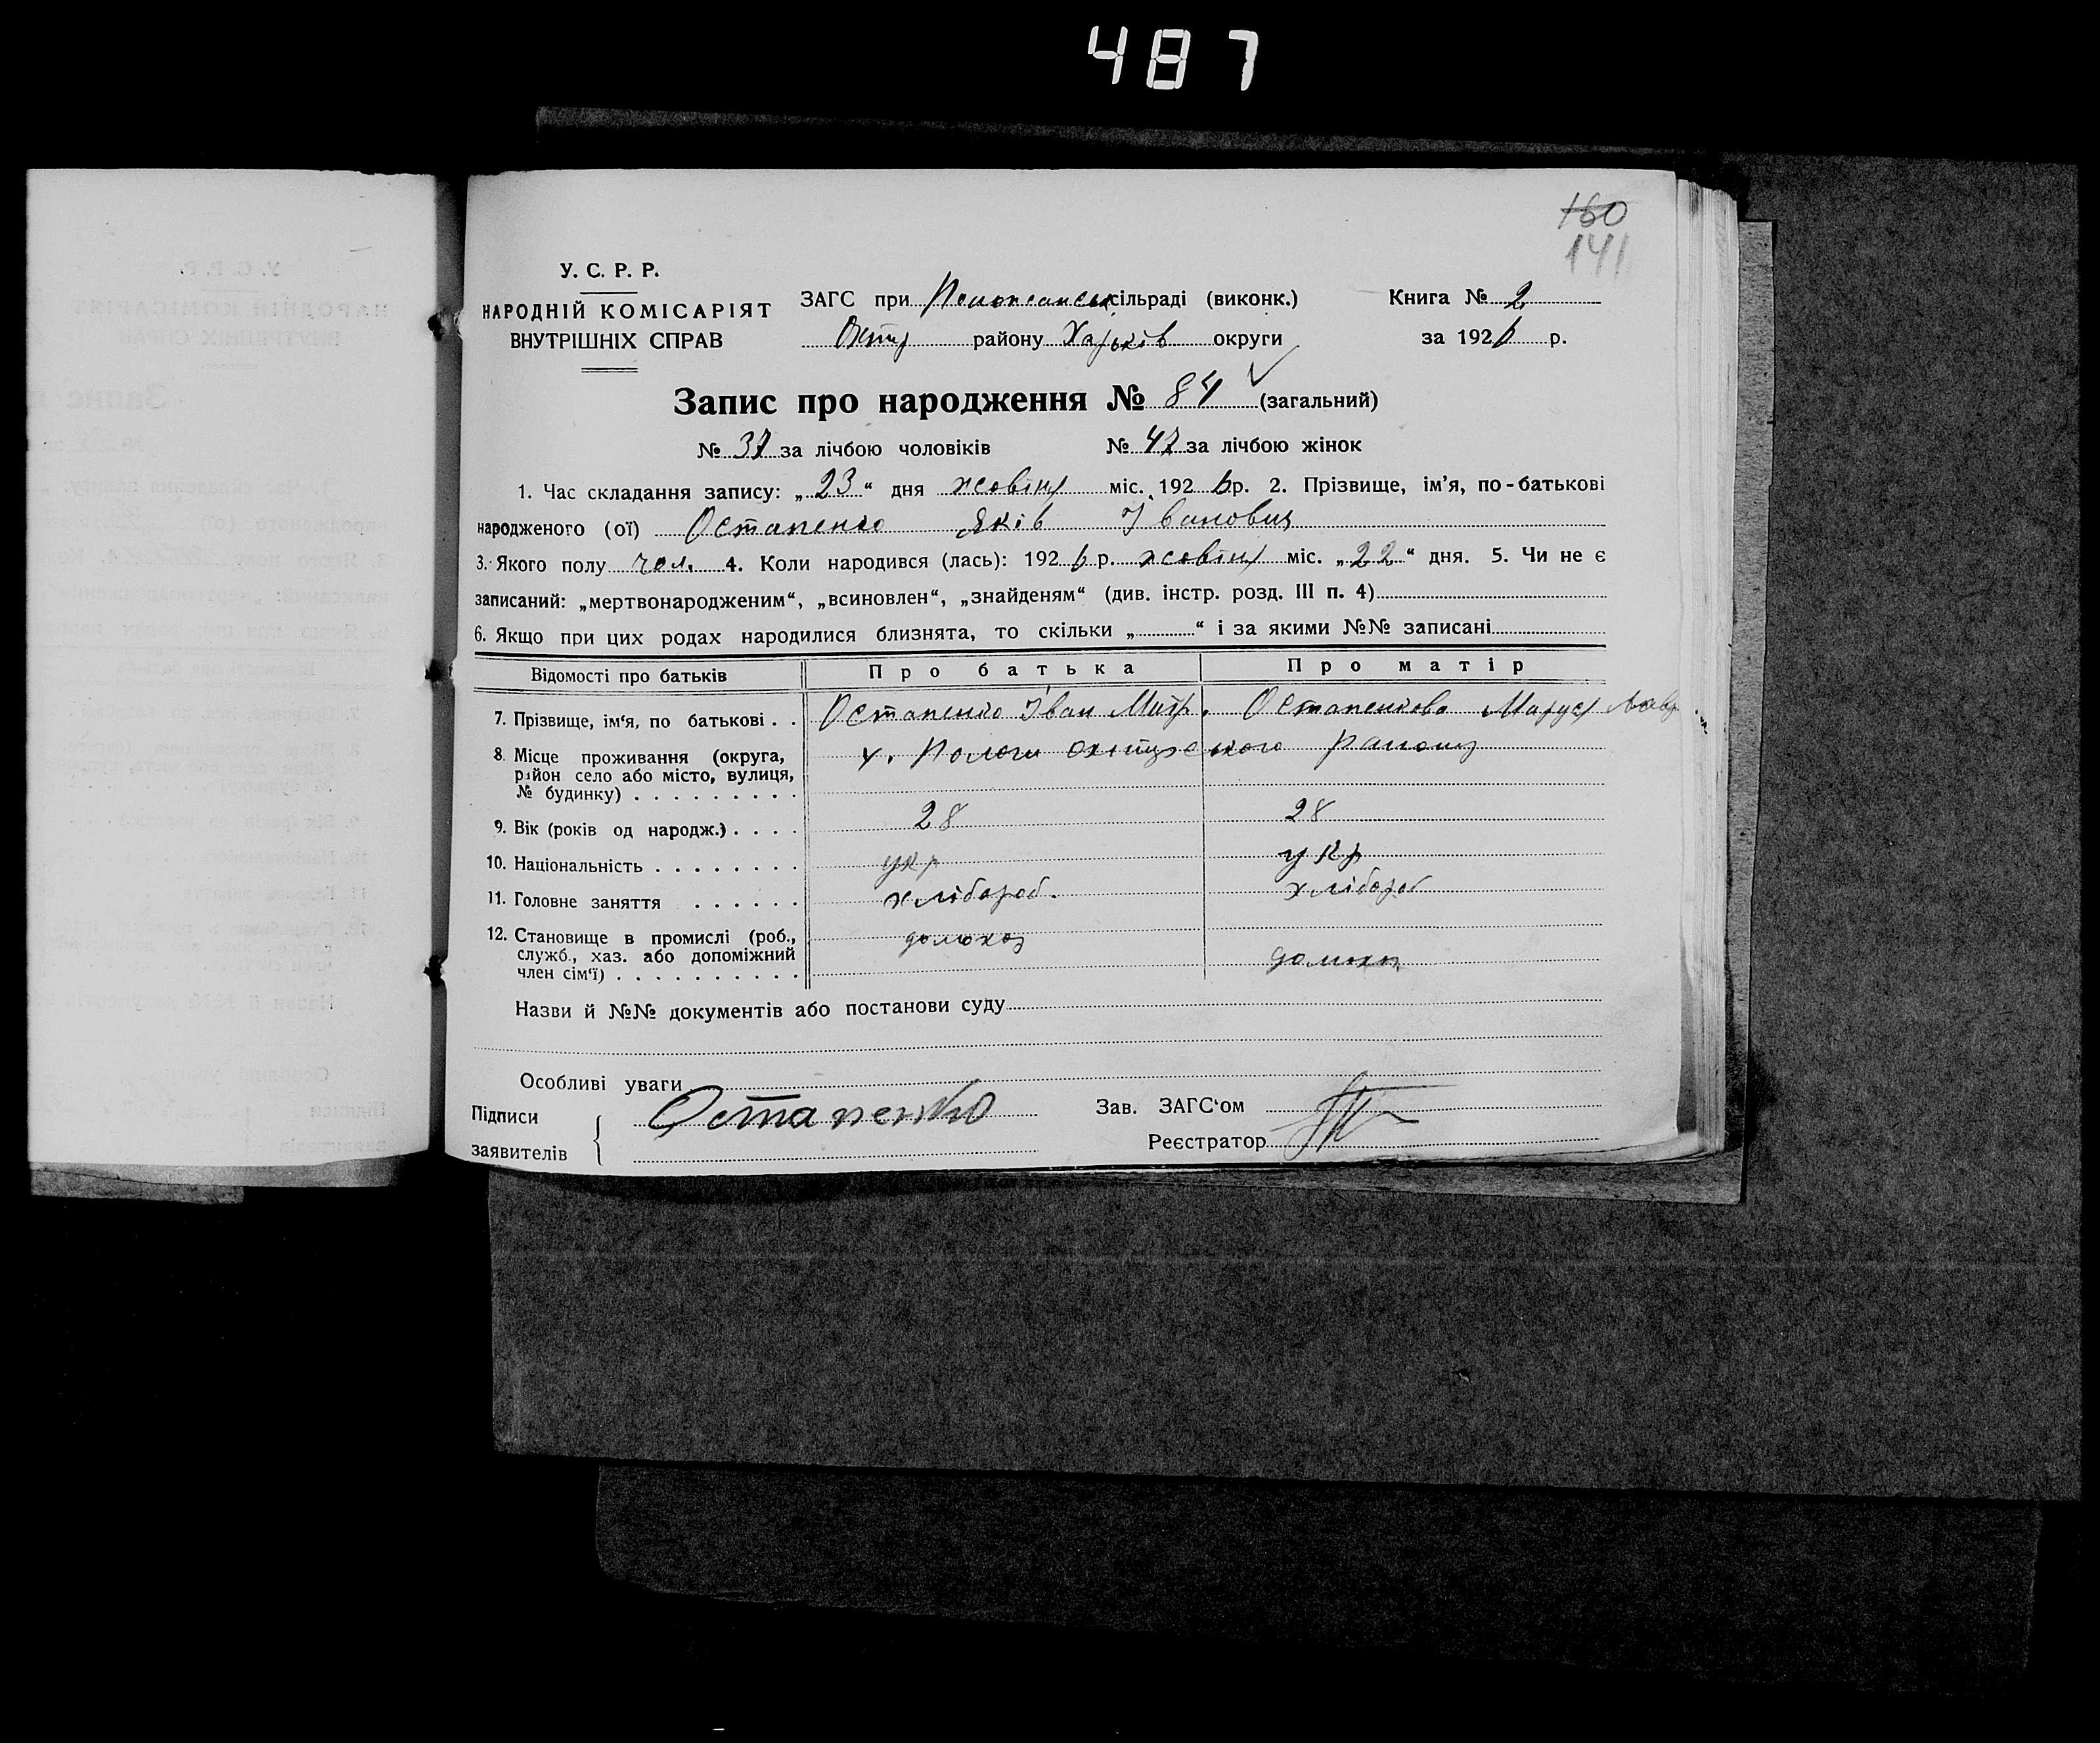 487
160
141
У. С. Р. Р.
НАРОДНІЙ КОМІСАРІЯТ
ВНУТРІШНІХ СПРАВ
ЗАГС при сільраді (виконк.)
району Харьків округи
Книга № 2
за 1926 р.
Запис про народження № 84 (загальний)
№ 37 за лічбою чоловіків № 47 за лічбою жінок
1. Час складання запису: „23“ дня жовтня міс. 1926 р. 2. Прізвище, ім’я, по-батькові
народженого (ої) Остапенко Яків Іванович
3. Якого полу чол. 4. Коли народився (лась): 1926 р. жовтня міс. „22“ дня. 5. Чи не є
записаний: „мертвонародженим“, „всиновлен“, „знайденям“ (див. інстр. розд. III п. 4)
6. Якщо при цих родах народилися близнята, то скільки „ “ і за якими №№ записані
Відомості про батьків Про батька Про матір
7. Прізвище, ім‘я, по батькові . . Остапенко Іван Митр. Остапенкова Маруся Лавр
8. Місце проживання (округа, х. Пологи району
район село або місто, вулиця,
№ будинку) . . . . . . . . .
9. Вік (років од народж.) . . . . 28 28
10. Національність . . . . . . . . укр укр
11. Головне заняття . . . . . . хлібороб. хлібороб
12. Становище в промислі (роб., домохоз
служб., хаз. або допоміжний домохоз
член сім‘ї) . . . . . . . . . .
Назви й №№ документів або постанови суду
Особливі уваги
Підписи Остапенко Зав. ЗАГС‘ом
заявителів Реєстратор